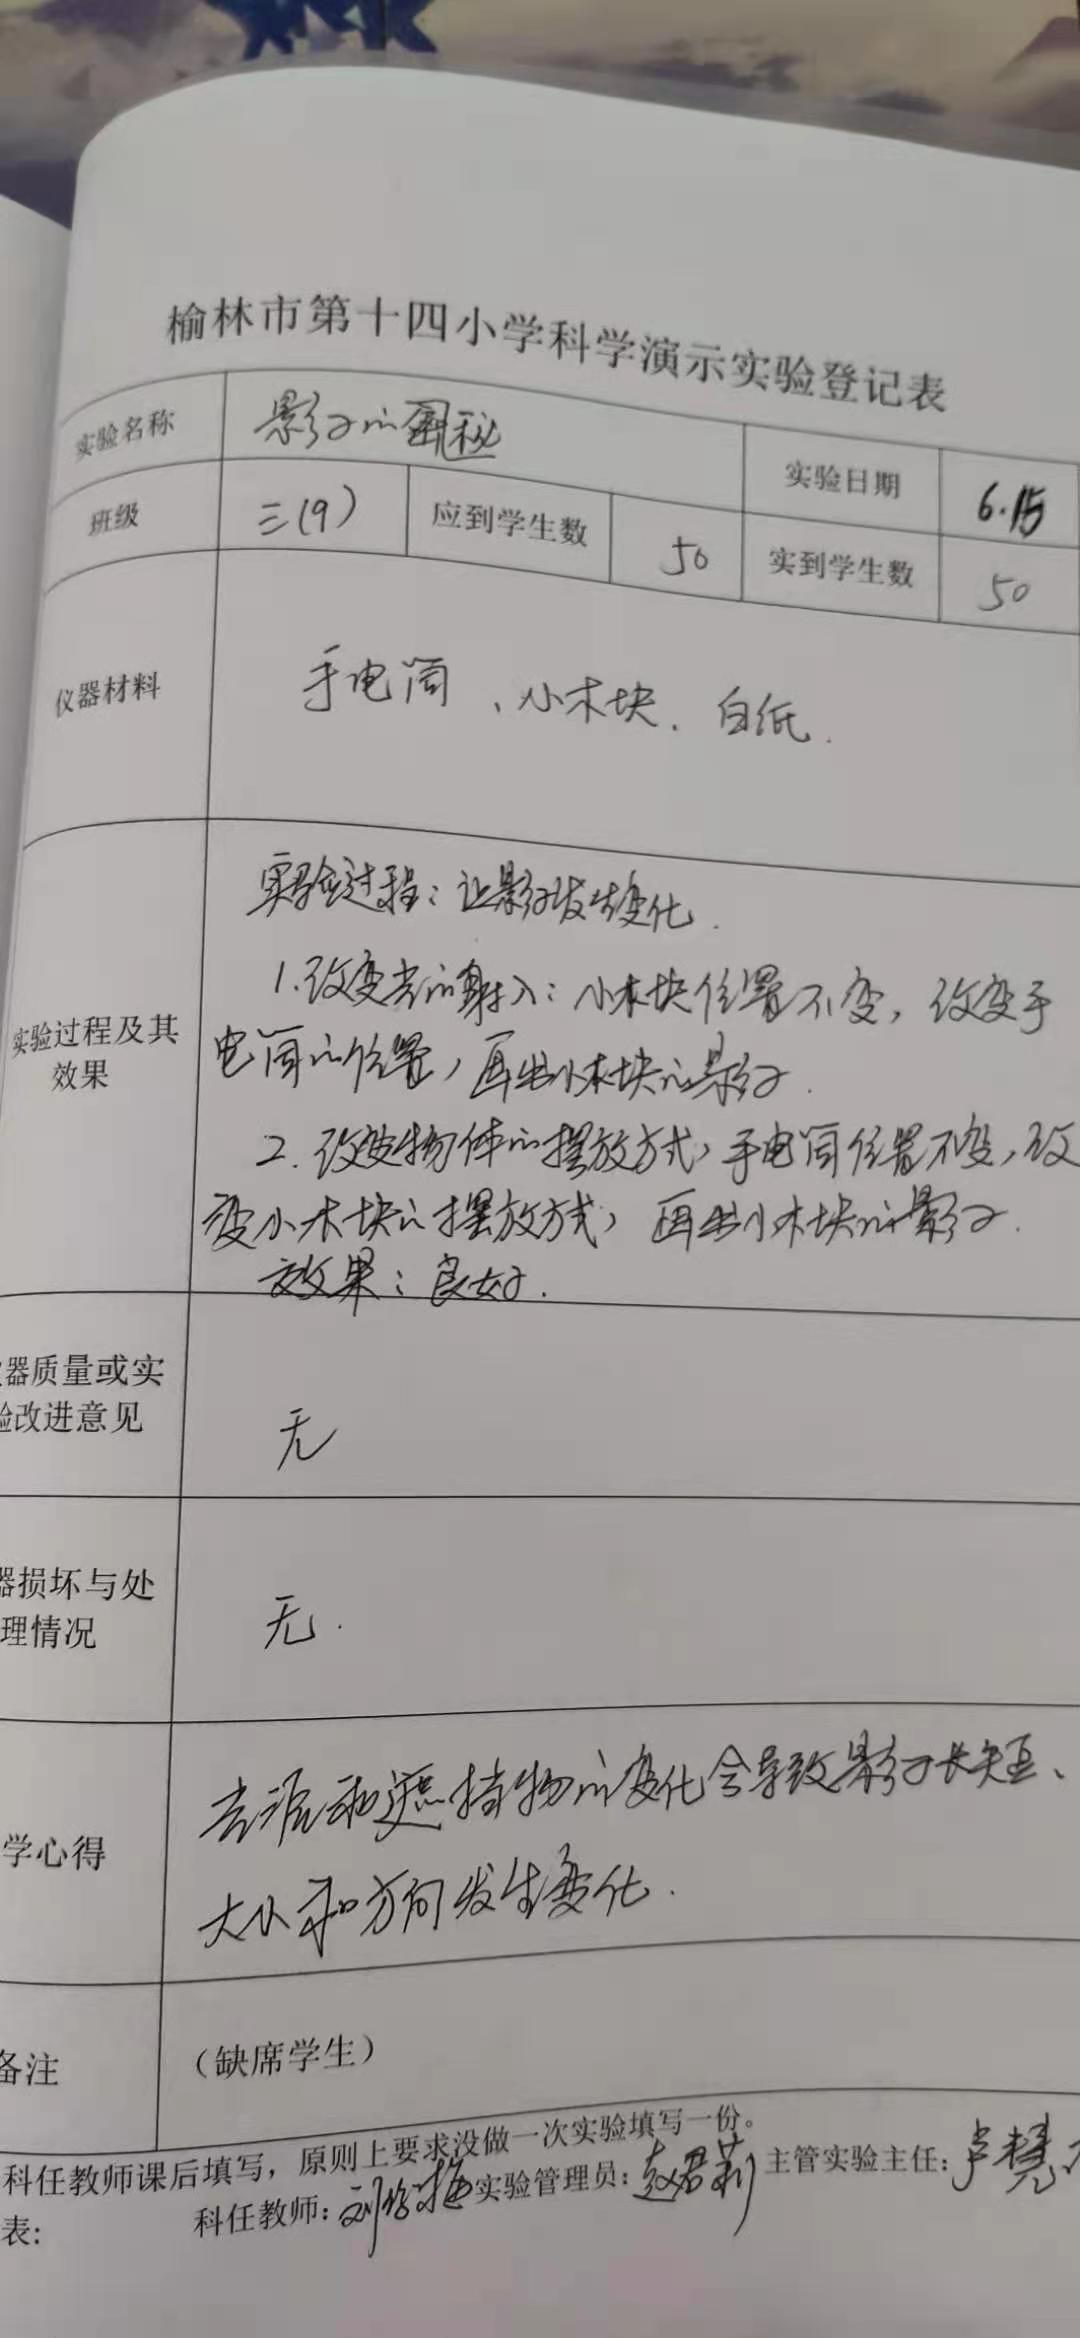 榆林市第十四小学科学演示实验登记表
实验名称 影子的秘 实验日期 6.15
班级 三(9) 应到学生数 50 实到学生数 50
仪器材料 手电筒、小木块、白纸.
实验过程及其
效果
实验过程:让影子发生变化.
1.改变光的射入:小木块位置不变,改变手
电筒的位置,画出小木块的影子.
2.改变物体的摆放方式,手电筒位置不变,改
变小木块的摆放方式,画出小木块的影子.
效果:良好.
器质量或实
验改进意见
无
器损坏与处
理情况
无.
学心得
光源和遮挡物的变化会导致影子长短、
大小和方向发生变化.
备注 (缺席学生)
科任教师课后填写,原则上要求没做一次实验填写一份。
表: 科任教师:刘 实验管理员:赵君莉 主管实验主任:卢慧